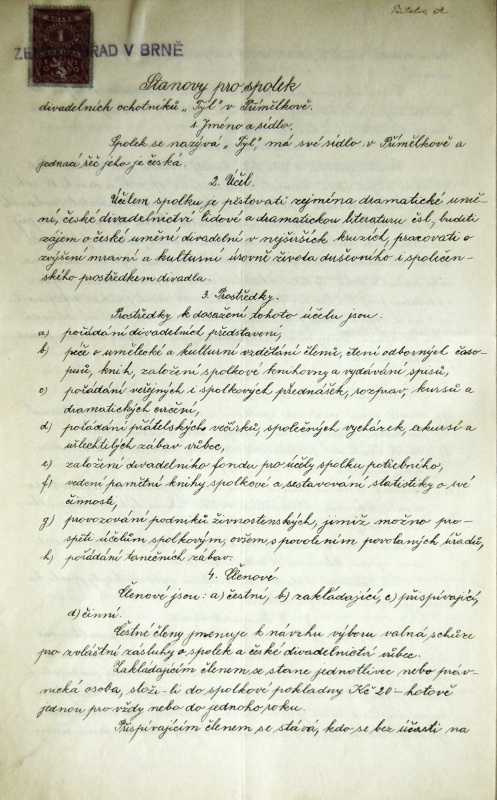 Příloha A
KOLEK
1
ZEMSKÝ ÚŘAD V BRNĚ
Stanovy pro spolek
divadelních ochotníků „Tyl" v Přímělkově.
1. Jméno a sídlo.
Spolek se nazývá „Tyl", má své sídlo v Přímělkově a
jednací řeč jeho je česká.
2. Účel.
Účelem spolku je pěstovati zejména dramatické umě-
ní, české divadelnictví lidové a dramatickou literaturu čsl., buditi
zájem o české umění divadelní v nejširších kruzích, pracovati o
zvýšení mravní a kulturní úrovně života duševního i společen-
ského prostředkem divadla.
3. Prostředky.
Prostředky k dosažení tohoto účelu jsou:
a) pořádání divadelních představení,
b) péče o umělecké a kulturní vzdělání členů, čtení odborných časo-
pisů, knih, založení spolkové knihovny a vydávání spisů,
c) pořádání veřejných i spolkových přednášek, rozprav, kursů a
dramatických cvičení,
d) pořádání přátelských večírků, společných vycházek, a kursů a
ušlechtilých zábav vůbec,
e) založení divadelního fondu pro účely spolku potřebného,
f) vedení pamětní knihy spolkové a sestavování statistiky o své
činnosti,
g) provozování podniků živnostenských, jimiž možno pro-
spěti účelům spolkovým, ovšem s povolením povolaných úřadů,
h) pořádání tanečních zábav.
4. Členové.
Členové jsou: a) čestní, b) zakládající, c) přispívající,
d) činní.
Čestné členy jmenuje k návrhu výboru valná schůze
pro zvláštní zásluhy o spolek a české divadelnictví vůbec.
Zakládajícím členem se stane jednotlivec nebo práv-
nická osoba, složí-li do spolkové pokladny Kč 20- hotově
jednou pro vždy nebo do jednoho roku.
Přispívajícím členem se stává, kdo se bez účasti na